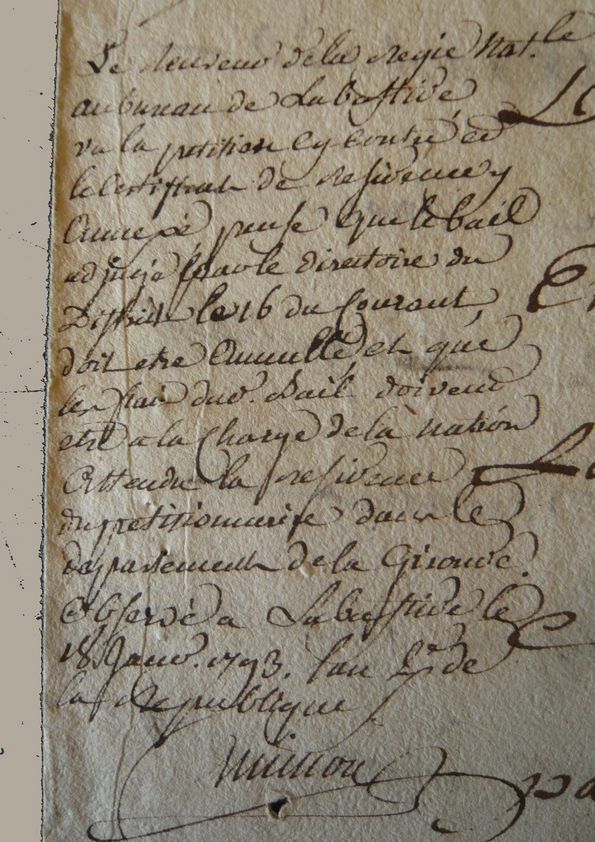 Le Receveur de la Regie Nat.le
au bureau de Labastide
vu la petition cy contre et
le Certificat de residence y
Annexé pense que le bail
adjugé par le directoire du
District le 16 du Courant,
doit etre Annullé et que
les frais dud. Bail doivent
etre a la Charge de la Nation
Attendu la residence
du petitionnaire dans le
departement de la Gironde.
Observé a Labastide le
18 Janv. 1793. l'an 2e de
la Republique